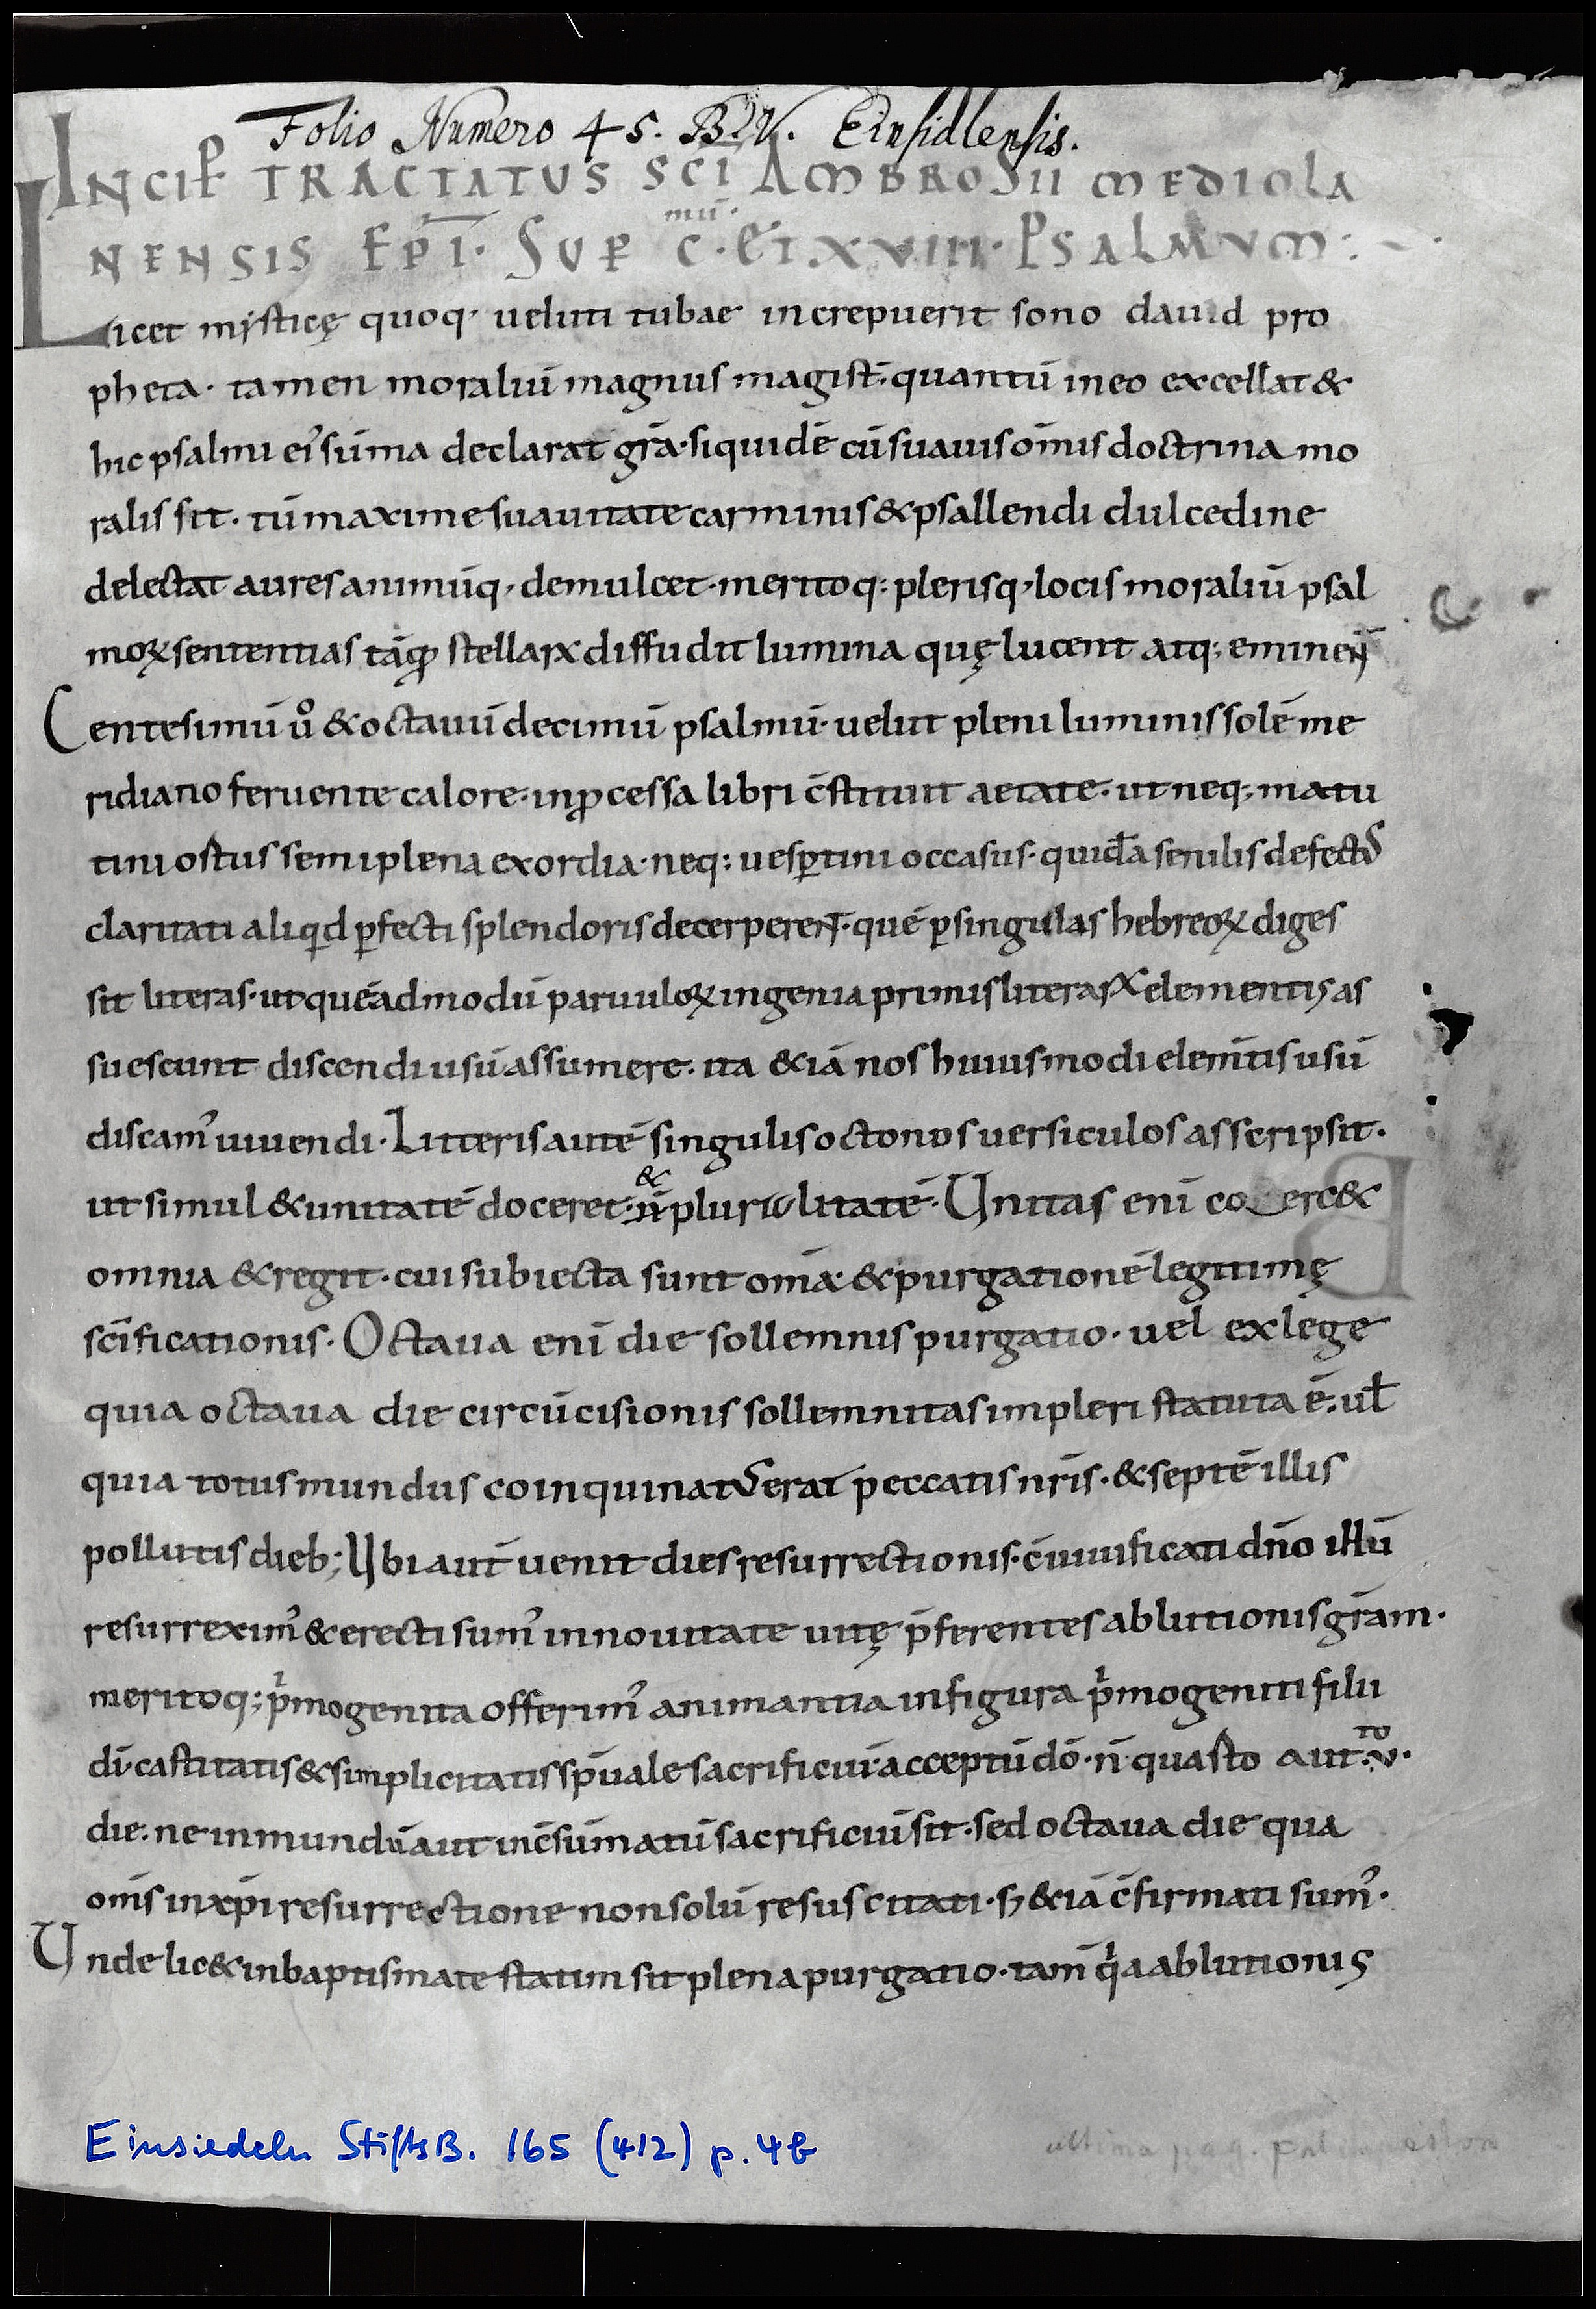 Folio Numero 45. B.V. Einsidlensis.
INCIP̄ TRACTATUS SC̄I AMBROSII MEDIOLA
mū.
NENSIS EP̄I· SUP̱ C·ET XVIII· PSALMVM:
Licet mysticę quoq· veluti tubae increpuerit sono dauid pro
pheta· tamen moraliū magnus magist̄· quantū ineo excellat &
hic psalmi ei᾽ sūma declarat gr̄a· siquidē cū suauis om̄is doctrina mo
ralis sit· tū maxime suauitate carminis & psallendi dulcedine
delectat aures animūq· demulcet· meritoq: plerisq· locis moraliū psal
moꝝ sententias tāꝙ stellaꝝ diffudit lumina quę lucent atq: eminen̄t
Centesimū u͛o & octauū decimū psalmū· velut pleni luminis solē me
ridiano feruente calore· inꝓcessa libri c̄stituit aetate· ut neq: matu
tini ostus semiplena exordia· neq: uesꝑtini occasus· quidā senilis defectꝰ
claritati aliqid ꝑfecti splendoris decerperent· quē ꝑsingulas hebreoꝝ diges
sit literas· ut quēadmodū paruuloꝝ ingenia primis literaꝝ elementis as
suescunt discendi usū assumere· ita &iā nos huiusmodi elem̄tis usū
discam᾽ uiuendi· Litteris autē singulis octonos uersiculos asscripsit·
&
ut simul & unitatē doceret· n̄ pluralitatē· Unitas eni͂ coherc&
omnia & regit· cui subiecta sunt om̄a· & purgationē legitimę
sc̄ificationis· Octaua eni͂ die sollemnis purgatio· uel ex lege
quia octaua die circūcisionis sollemnitas impleri statuta ē· ul̄
quia totus mundus coinquinatꝰ erat peccatis nr̄is· & septē illis
pollutis dieb; Ubi aut̄ uenit dies resurrectionis· c̄uiuificati dn̄o illū
resurrexim᾽ & erecti sum᾽ innouitate uitę p̄ferentes ablutionis gr̄am·
meritoq; pͥmogenita offerim᾽ animantia infigura pͥmogeniti filii
dī· castitatis & simplicitatis sp̄uale sacrificiū· acceptū dō· n̄ quasto aut
to
·v·
die· ne inmundū aut inc̄sūmatū sacrificiū sit· sed octaua die qua
om̄s inxp̄i resurrectione non solū resuscitati· sꝫ &iā c̄firmati sum᾽·
Unde lic& inbaptismate statim sit plena purgatio· tam̄ qͥa ablutionis
Einsiedeln StiftsB. 165 (412) p. 4b
ultima pag.